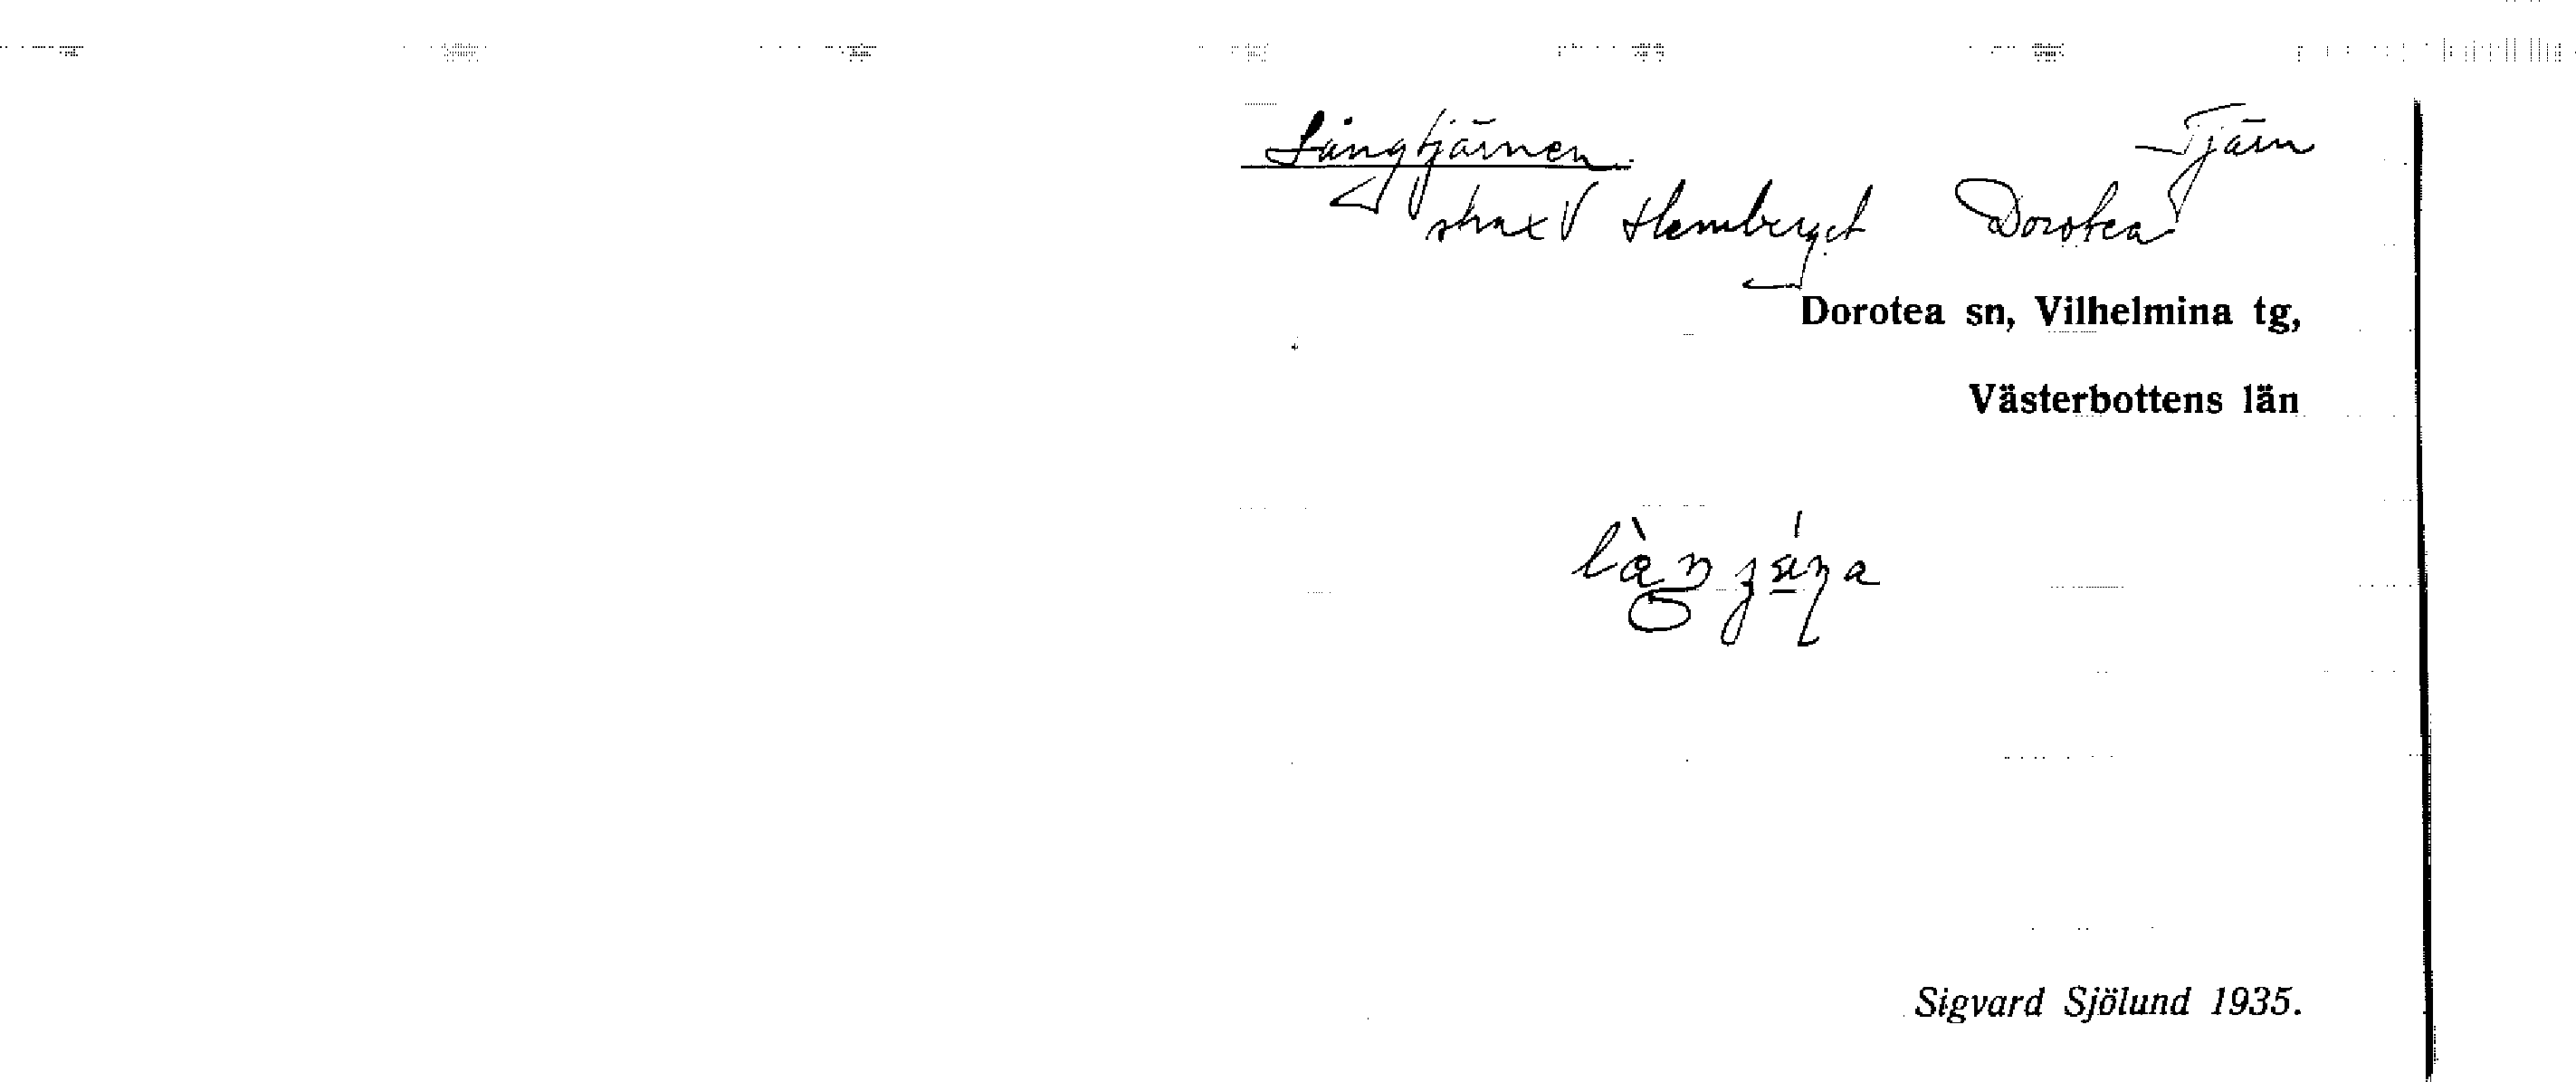 Långtjärnen Tjärn
strax V Hemberget Dorotea
Dorotea sn, Vilhelmina tg,
Västerbottens län
Sigvard Sjölund 1935.